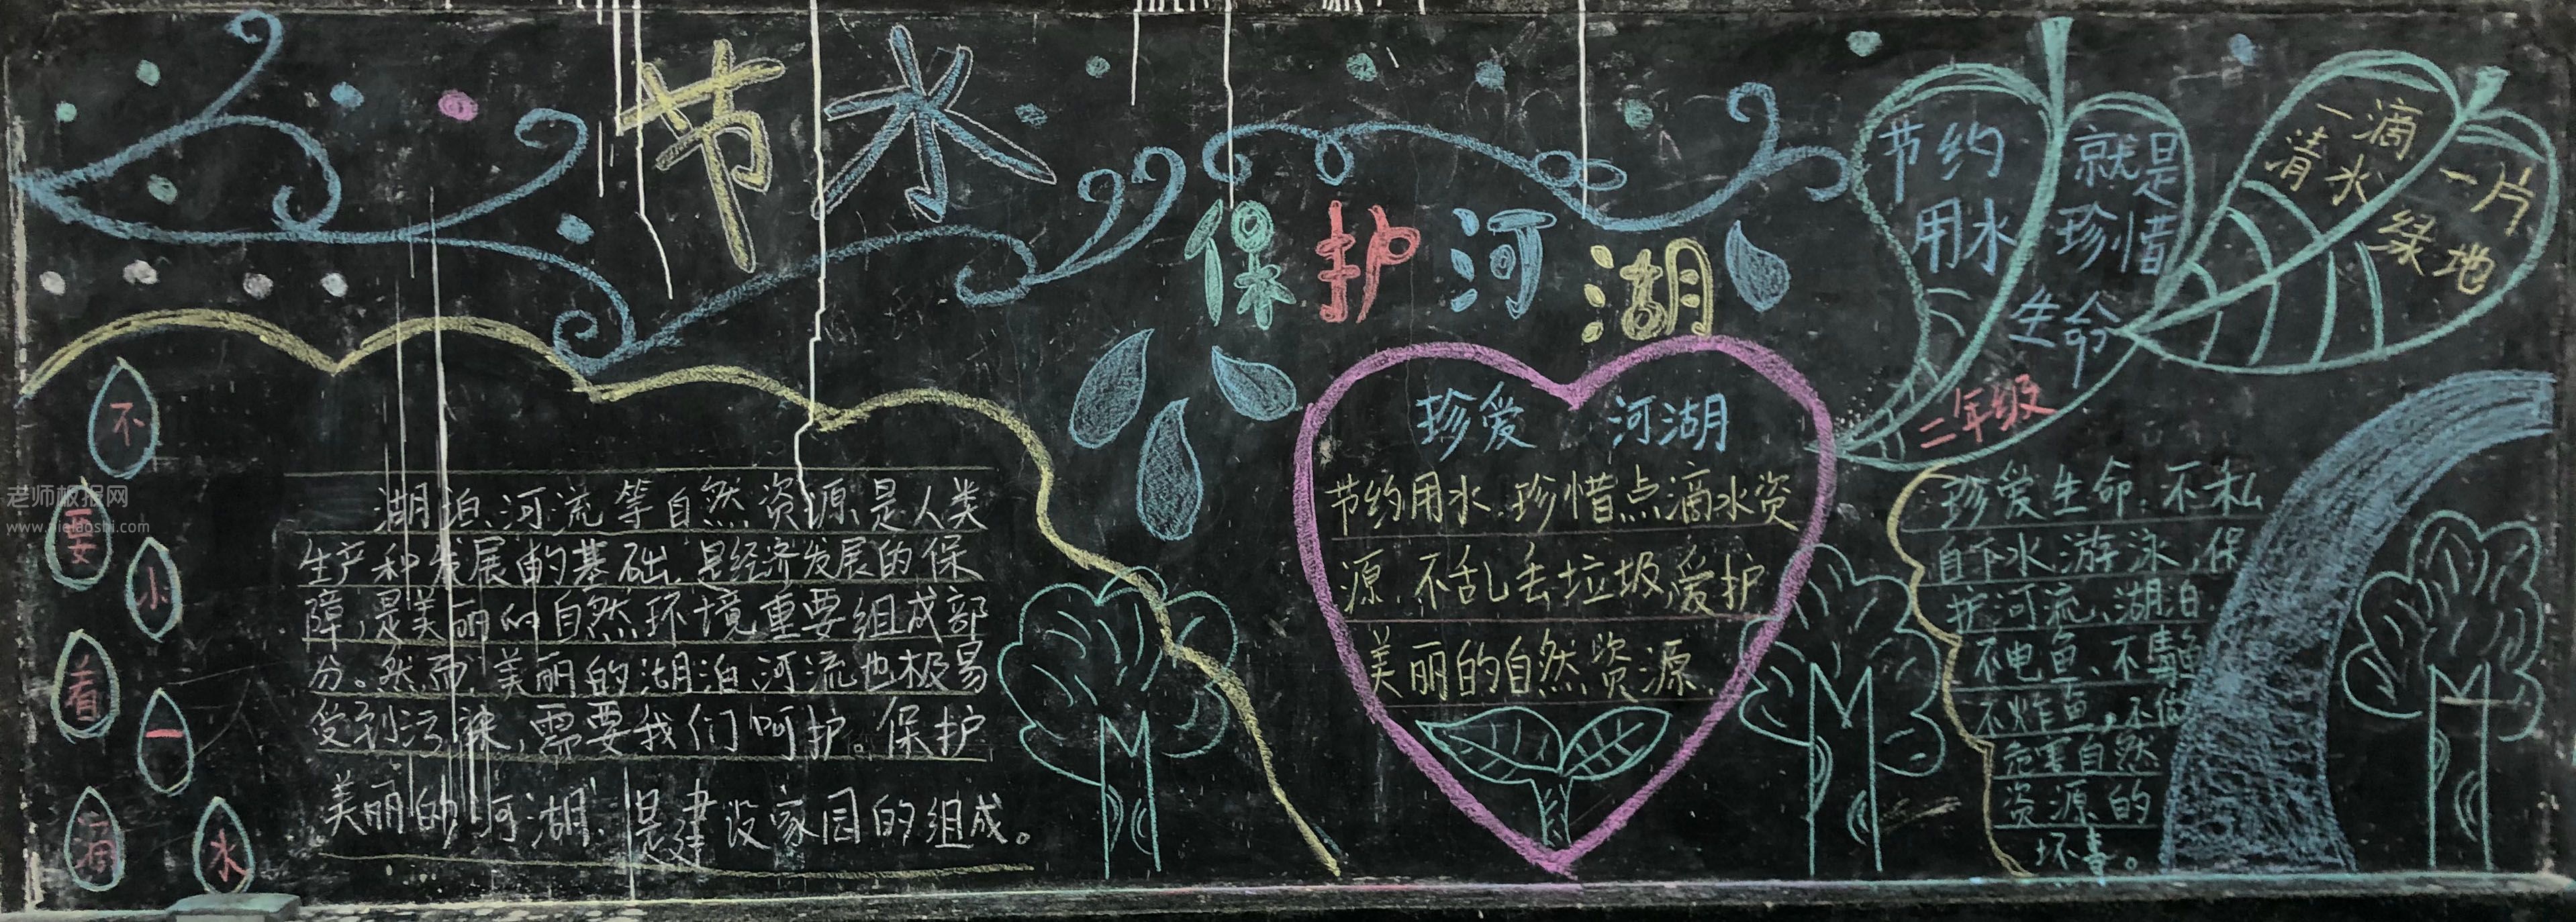 节水
保护河湖
节约
用水
就是
珍惜
生命
一滴
清水
一片
绿地
二年级
不
要
小
看
一
滴
水
老师板报网
湖泊、河流等自然资源是人类
生产和发展的基础,是经济发展的保
障,是美丽的自然环境重要组成部
分。然而,美丽的湖泊河流也极易
受到污染,需要我们呵护。保护
美丽的河湖,是建设家园的组成。
珍爱 河湖
节约用水,珍惜点滴水资
源,不乱丢垃圾,爱护
美丽的自然资源.
珍爱生命,不私
自下水游泳,保
护河流、湖泊.
不电鱼、不毒鱼
不炸鱼,不做
危害自然
资源的
坏事。